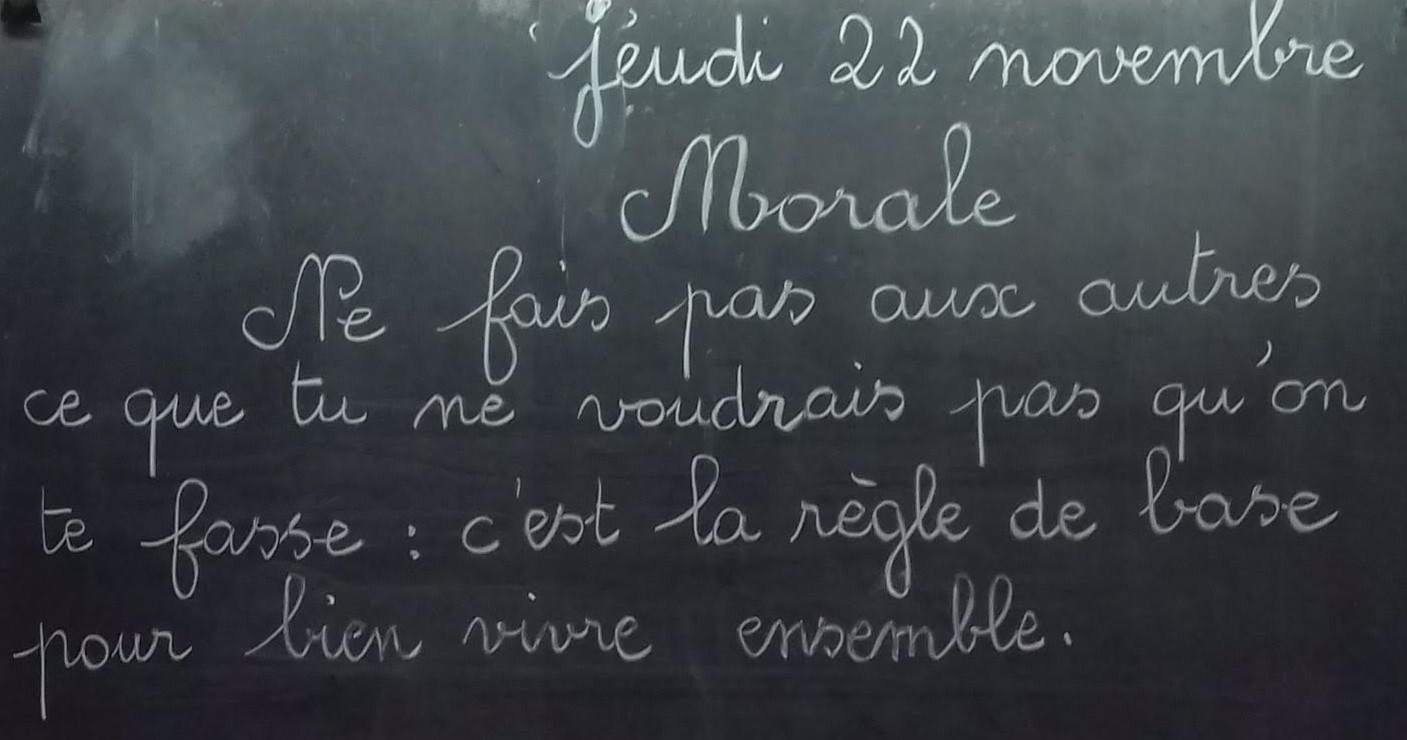 jeudi 22 novembre
Morale
Ne fais pas aux autres
ce que tu ne voudrais pas qu'on
te fasse : c'est la règle de base
pour bien vivre ensemble.